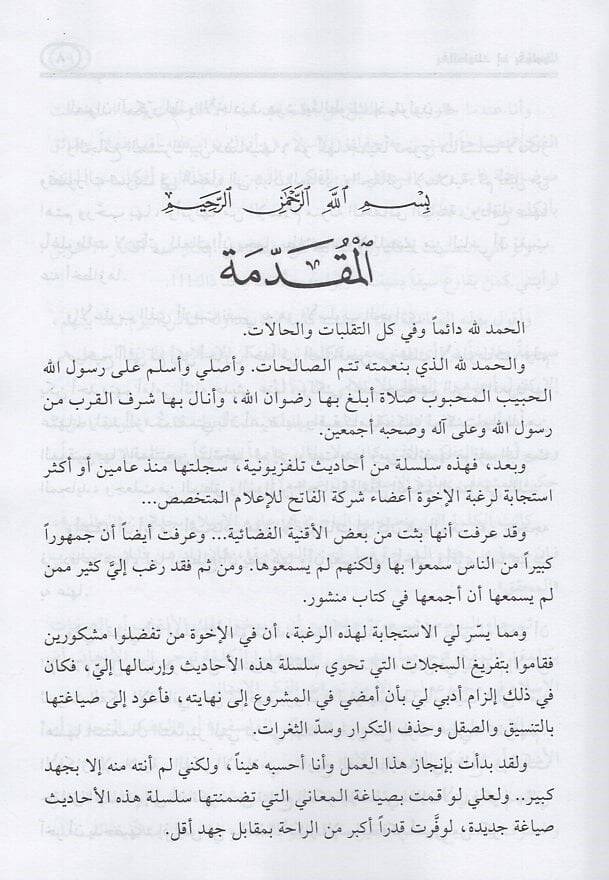 بِسْمِ اللَّهِ الرَّحْمَنِ الرَّحِيمِ
المُقَدِّمَة
الحمد لله دائماً وفي كل التقلبات والحالات.
والحمد لله الذي بنعمته تتم الصالحات. وأصلي وأسلم على رسول الله
الحبيب المحبوب صلاة أبلغ بها رضوان الله، وأنال بها شرف القرب من
رسول الله وعلى آله وصحبه أجمعين.
وبعد، فهذه سلسلة من أحاديث تلفزيونية، سجلتها منذ عامين أو أكثر
استجابة لرغبة الإخوة أعضاء شركة الفاتح للإعلام المتخصص...
وقد عرفت أنها بثت من بعض الأقنية الفضائية... وعرفت أيضاً أن جمهوراً
كبيراً من الناس سمعوا بها ولكنهم لم يسمعوها. ومن ثم فقد رغب إليَّ كثير ممن
لم يسمعها أن أجمعها في كتاب منشور.
ومما يسَّر لي الاستجابة لهذه الرغبة، أن في الإخوة من تفضلوا مشكورين
فقاموا بتفريغ السجلات التي تحوي سلسلة هذه الأحاديث وإرسالها إليّ، فكان
في ذلك إلزام أدبي لي بأن أمضي في المشروع إلى نهايته، فأعود إلى صياغتها
بالتنسيق والصقل وحذف التكرار وسدّ الثغرات.
ولقد بدأت بإنجاز هذا العمل وأنا أحسبه هيناً، ولكني لم أنته منه إلا بجهد
كبير.. ولعلي لو قمت بصياغة المعاني التي تضمنتها سلسلة هذه الأحاديث
صياغة جديدة، لوفَّرت قدراً أكبر من الراحة بمقابل جهد أقل.